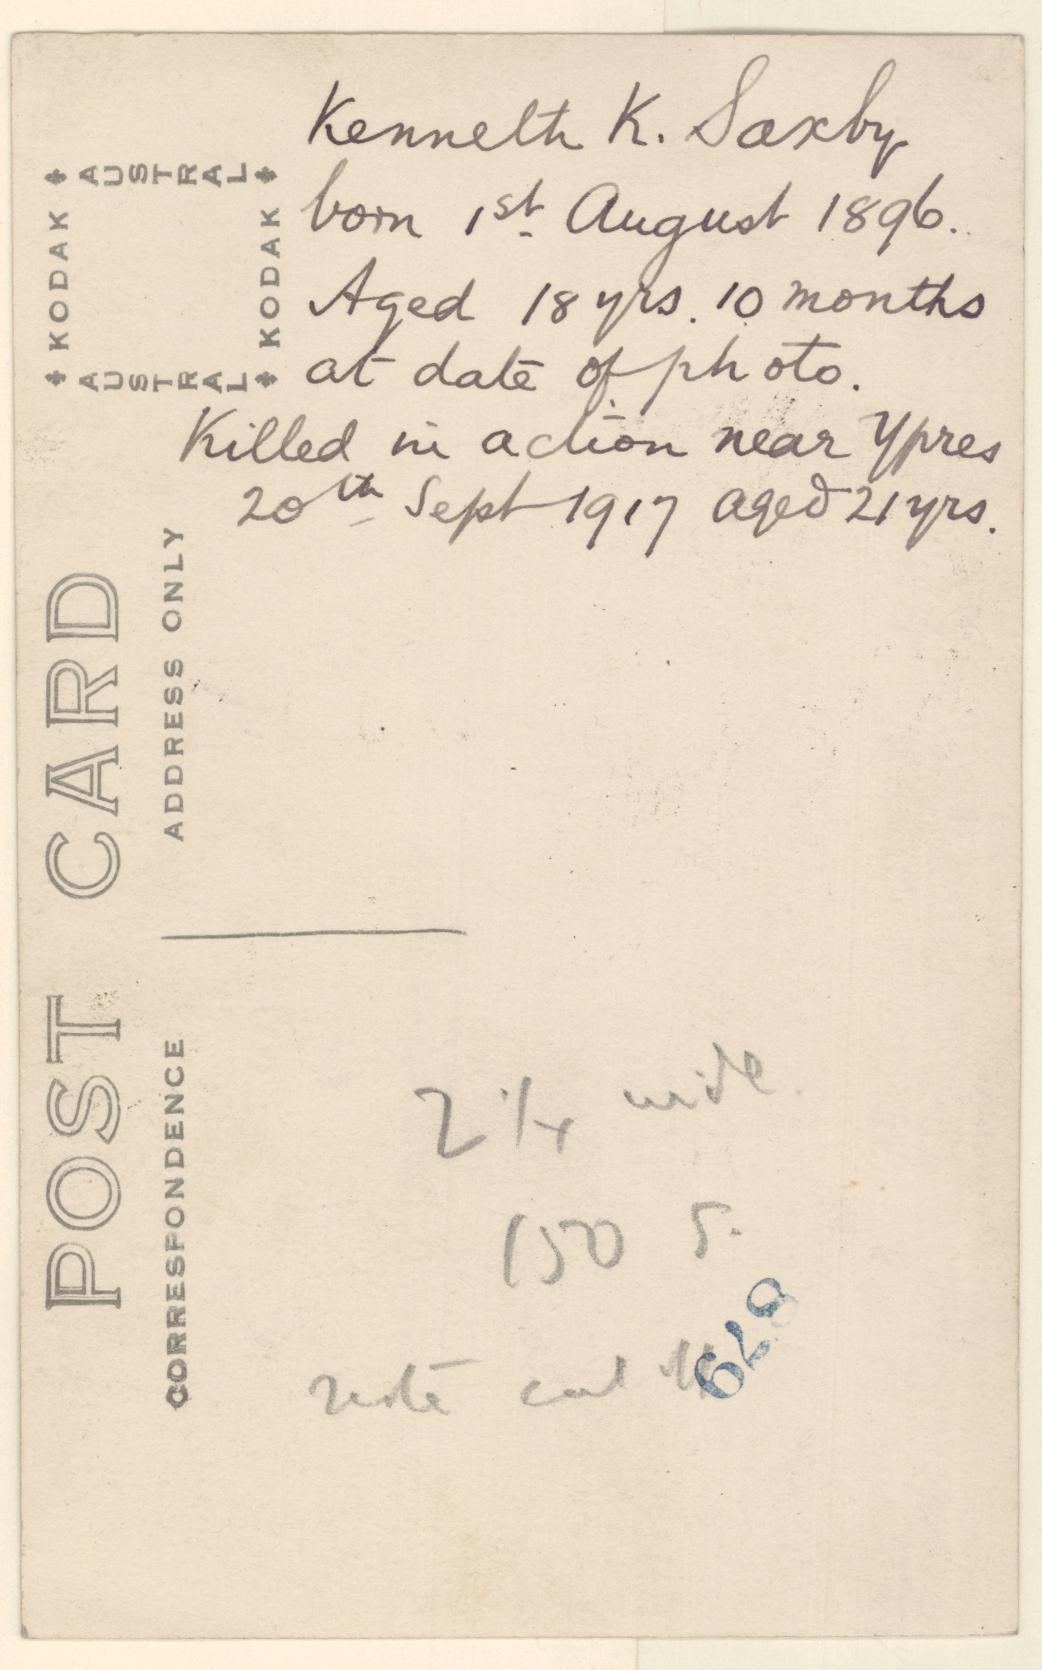 Kenneth K. Saxby
born 1st August 1896.
Aged 18 yrs. 10 months
at date of photo.
Killed in action near Ypres
20th Sept 1917 aged 21 yrs.
AUSTRAL
KODAK
KODAK
AUSTRAL
POST CARD
ADDRESS ONLY
CORRESPONDENCE
2 1/4 wide
150 S.
note cut
679